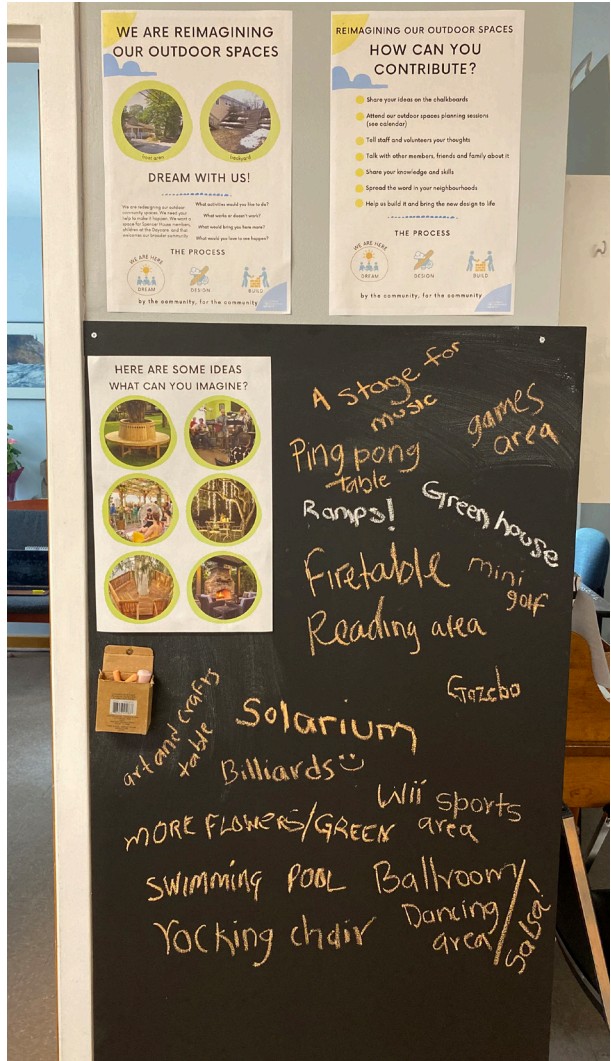 WE ARE REIMAGINING
OUR OUTDOOR SPACES
front area
backyard
DREAM WITH US!
We are redesigning our outdoor
community spaces. We need your
help to make it happen. We want a
space for Spencer House members,
children at the Daycare, and that
welcomes our broader community.
What activities would you like to do?
What works or doesn't work?
What would bring you here more?
What would you love to see happen?
THE PROCESS
WE ARE HERE
DREAM
DESIGN
BUILD
by the community, for the community
REIMAGINING OUR OUTDOOR SPACES
HOW CAN YOU
CONTRIBUTE?
Share your ideas on the chalkboards
Attend our outdoor spaces planning sessions
(see calendar)
Tell staff and volunteers your thoughts
Talk with other members, friends and family about it
Share your knowledge and skills
Spread the word in your neighbourhoods
Help us build it and bring the new design to life
THE PROCESS
WE ARE HERE
DREAM
DESIGN
BUILD
by the community, for the community
HERE ARE SOME IDEAS
WHAT CAN YOU IMAGINE?
A stage for
music
games
area
Ping pong
table
Ramps!
Green house
Firetable
mini
golf
Reading area
Gazebo
art and crafts
table
Solarium
Billiards
Wii sports
area
MORE FLOWERS/GREEN
SWIMMING POOL
Ballroom/
Dancing
area
Salsa!
rocking chair